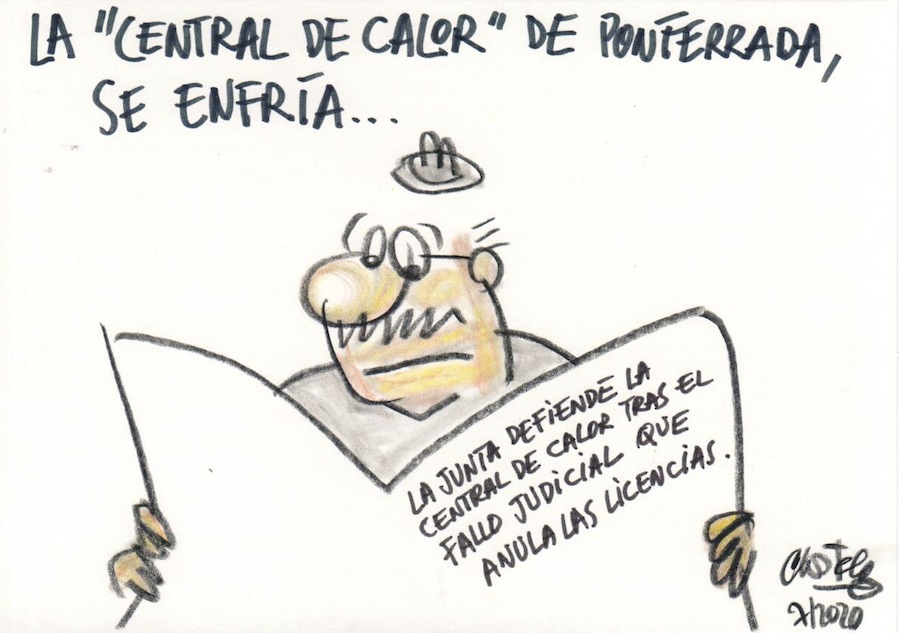 LA "CENTRAL DE CALOR" DE PONFERRADA,
SE ENFRÍA...
LA JUNTA DEFIENDE LA
CENTRAL DE CALOR TRAS EL
FALLO JUDICIAL QUE
ANULA LAS LICENCIAS.
7/2020